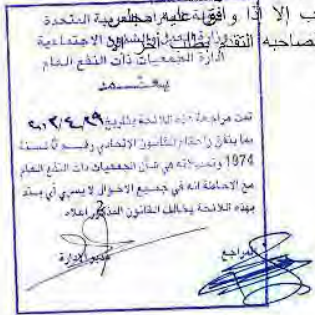 ب إلا إذا وافق عليه مجلس
لصاحبه التقدم بطلب آخر إلا
وزارة العمل والشؤون الاجتماعية
ادارة الجمعيات ذات النفع العام
يعتمد
تمت مراجعة هذه اللائحة بتاريخ
بما يتفق واحكام القانون الاتحادي رقم ٦ لسنة
1974 وتعديلاته في شأن الجمعيات ذات النفع العام
مع الاحاطة انه في جميع الاحوال لا يسري أي بند
بهذه اللائحة يخالف القانون المذكور اعلاه
المراجع
مدير الادارة